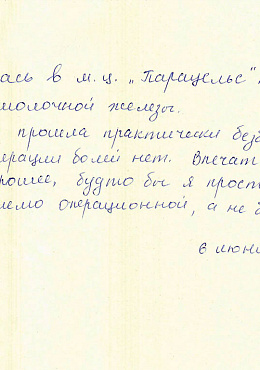 ась в м.ц. „Парацельс"
молочной железы.
прошла практически без
ерации болей нет. Впечат
рошее, будто бы я прост
ремо операционной, а не
6 июн